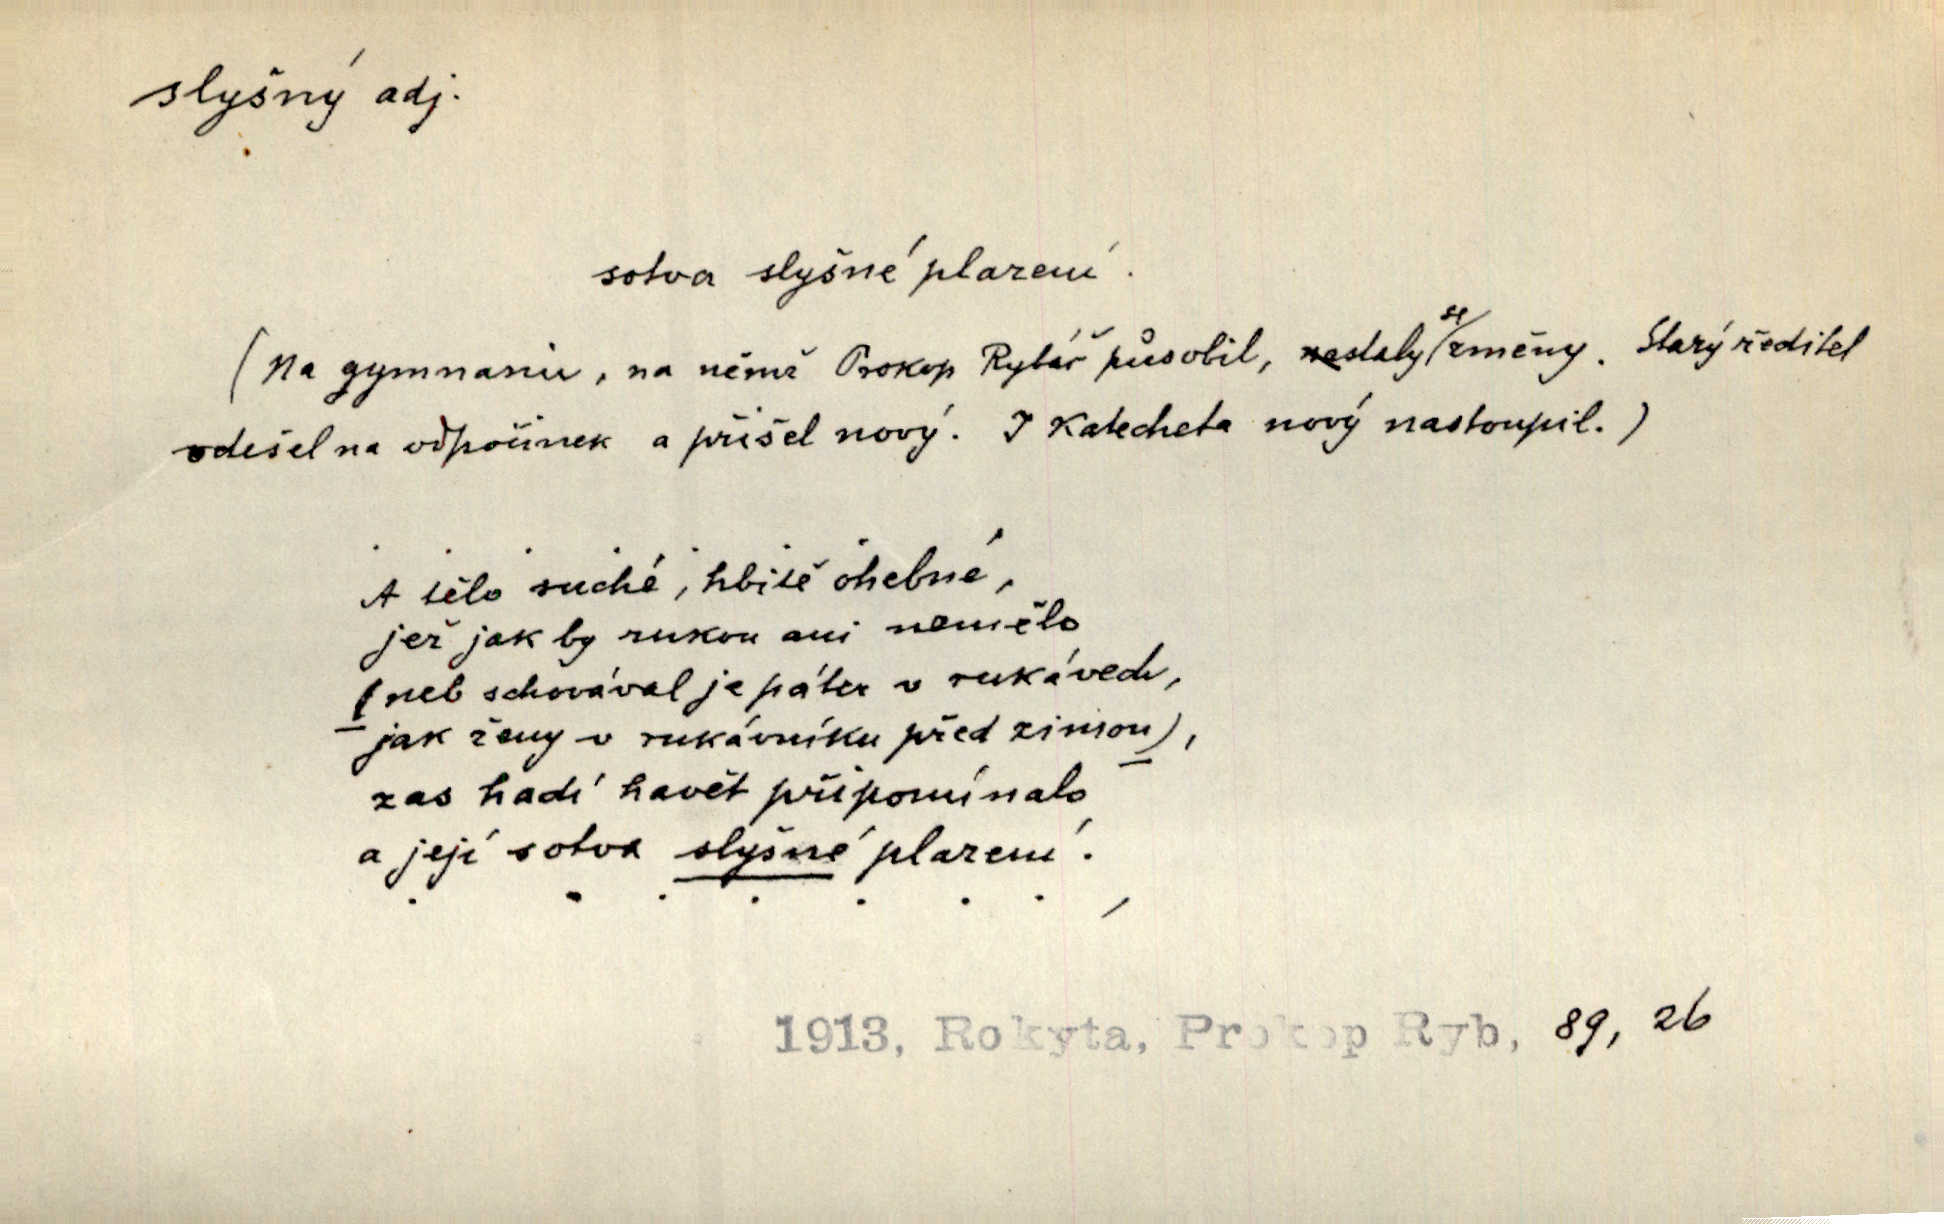 slyšný adj.
sotva slyšné plazení.
(Na gymnasiu, na němž Prokop Rybář působil, staly se změny. Starý ředitel
odešel na odpočinek a přišel nový. I katecheta nový nastoupil.)
. . . . . . .
A tělo suché, hbitě ohebné,
jež jak by rukou ani nemělo
(neb schovával je páter v rukávech,
jak ženy v rukávníku před zimou),
zas hadí havěť připomínalo
a její sotva slyšné plazení.
. . . . . . .
1913, Rokyta, Prokop Ryb, 89, 26